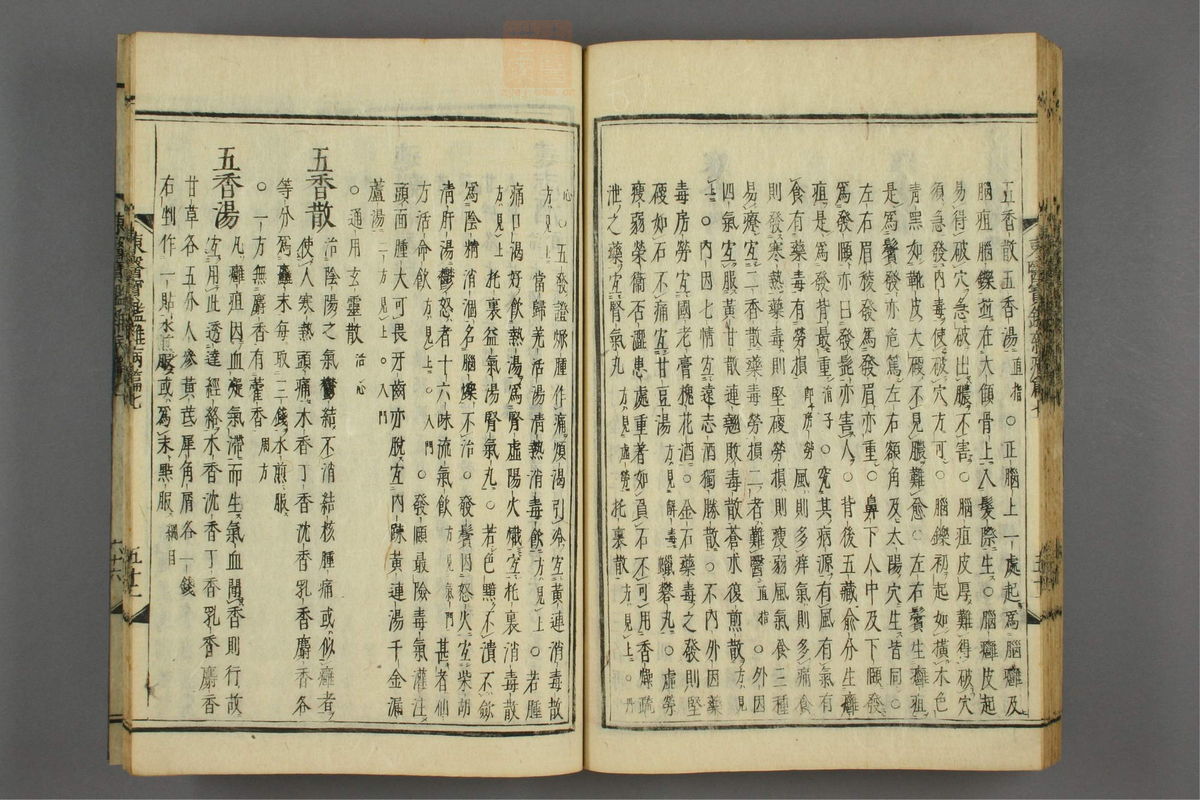 五香散五香湯直指○正腦上一處起爲腦癰及
腦疽腦鑠竝在大顖骨上入髮際生○腦癰皮起
易得破穴急破出膿不害○腦疽皮厚難得破穴
須急發內毒使破穴方可○腦鑠初起如橫木色
青黑如靴皮大硬不見膿難愈○左右鬢生癰疽
是爲鬢發亦危篤左右額角及太陽穴生皆同○
左右眉稜發爲發眉亦重○鼻下人中及下頤發
爲發頤亦曰發髭亦害人○背後五藏俞分生癰
疽是爲發背最重涓子○究其病源有風有氣有
食有藥毒有勞損卽房勞風則多痒氣則多痛食
則發寒熱藥毒則堅硬勞損則瘦弱風氣食三種
易療藥毒勞損二者難醫直指○外因
四氣宜服黃甘散連翹敗毒散蒼朮復煎散方見
上○內因七情宜遠志酒獨勝散○不內外因藥
毒房勞宜國老膏槐花酒○金石藥毒之發則堅
硬如石不痛宜甘豆湯方見解毒蠟礬丸○虛勞
瘦弱榮衛否澁患處重者如負石不可用香燥疏
泄之藥宜腎氣丸方見虛勞托裏散方見上○丹
心○五發證焮腫作痛煩渴引冷宜黃連消毒散
方見上當歸羌活湯清熱消毒飮方見上○若腫
痛口渴好飮熱湯爲腎虛陽火熾宜托裏消毒散
方見上托裏益氣湯腎氣丸○若色黯不潰不斂
爲陰精消涸名腦爍不治○發鬢因怒火宜柴胡
淸肝湯鬱怒者十六味流氣飮方見氣門甚者仙
方活命飮方見上○入門○發頤最險毒氣灌注
頭面腫大可畏牙齒亦脫宜內踈黃連湯千金漏
蘆湯二方見上○入門
○通用玄靈散治心
五香散治陰陽之氣鬱結不消結核腫痛或似癰者
使人寒熱頭痛木香丁香沈香乳香麝香各
等分爲麤末每取三錢水煎服
○一方無麝香有藿香局方
五香湯凡癰疽因血凝氣滯而生氣血聞香則行故
宜用此透達經絡木香沈香丁香乳香麝香
甘草各五分人參黃芪犀角屑各一錢
右剉作一貼水煎服或爲末點服綱目